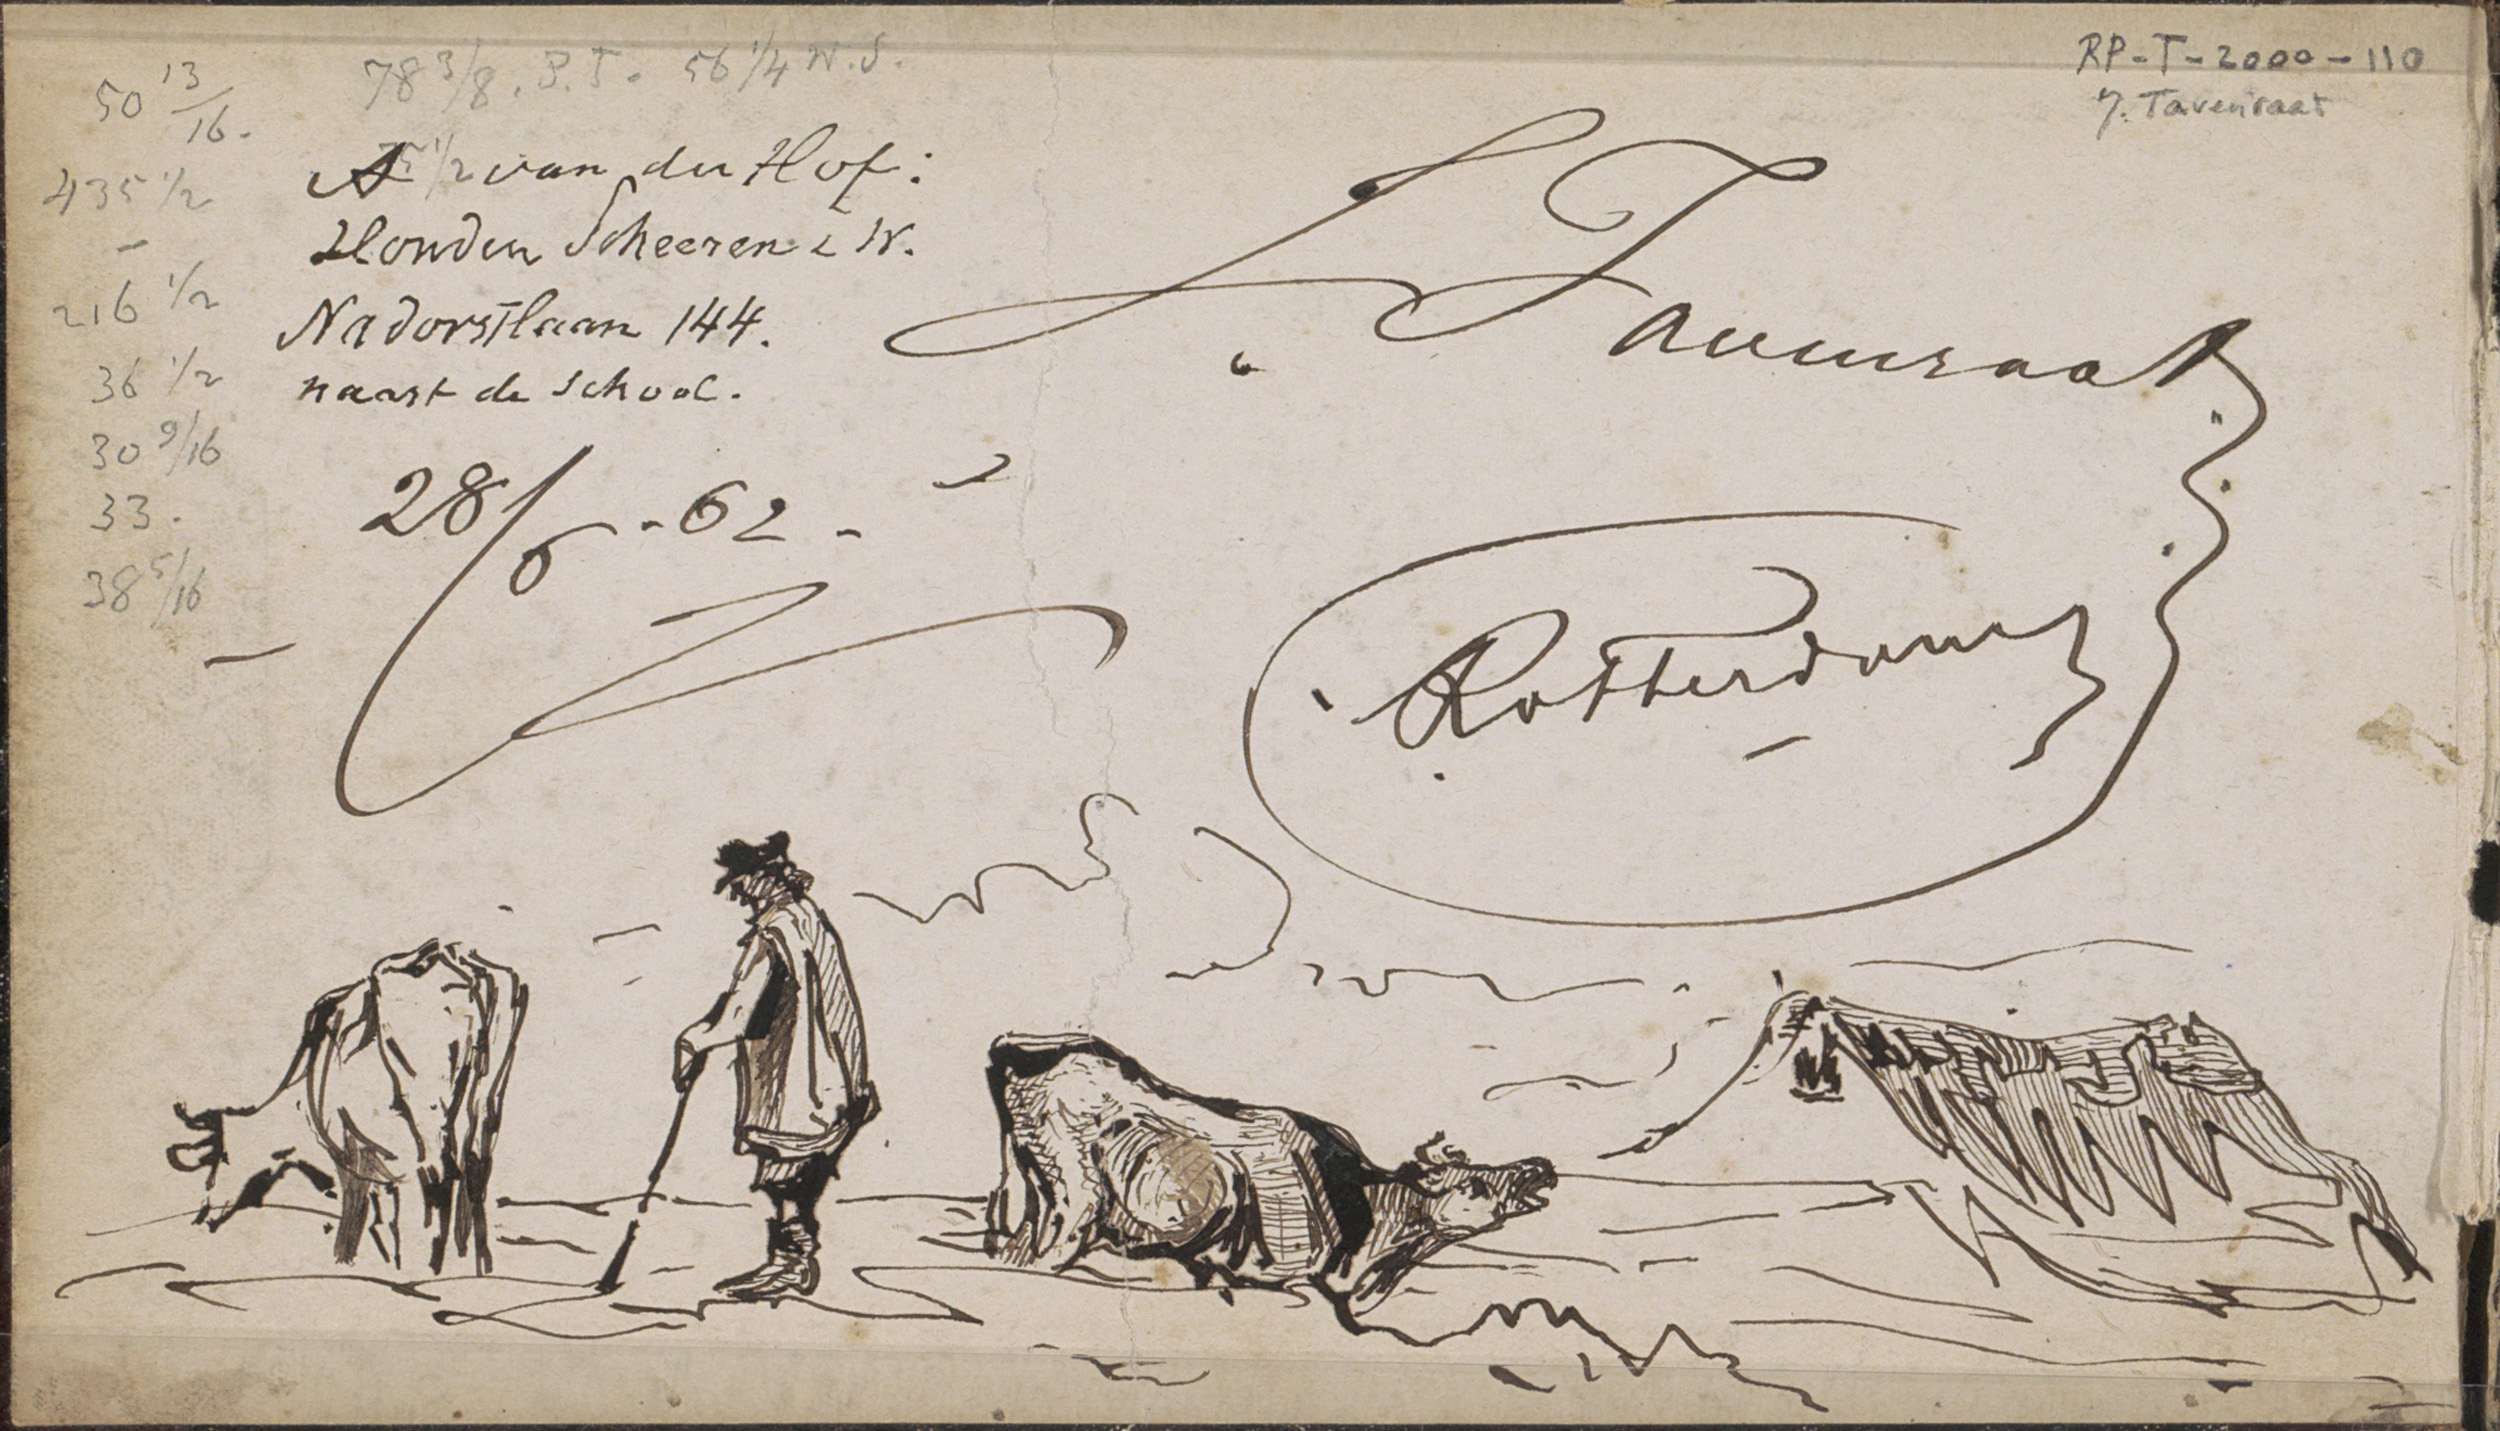 RP-T-2000-110
J. Tavenraat
78 3/8. P.T. 56 1/4 W.S.
50 13/16.
435 1/2
-
216 1/2
36 1/2
30 9/16
33.
38 5/16
A van der Hof:
Honden Scheeren i W.
Nadorstlaan 144.
naast de School.
28/6 - 62 -
J. Tavenraat
Rotterdam